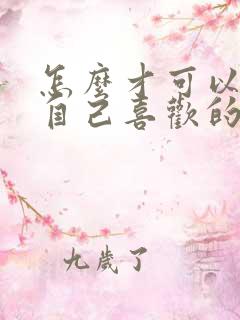 怎麼才可以
自己喜歡的
九歲了